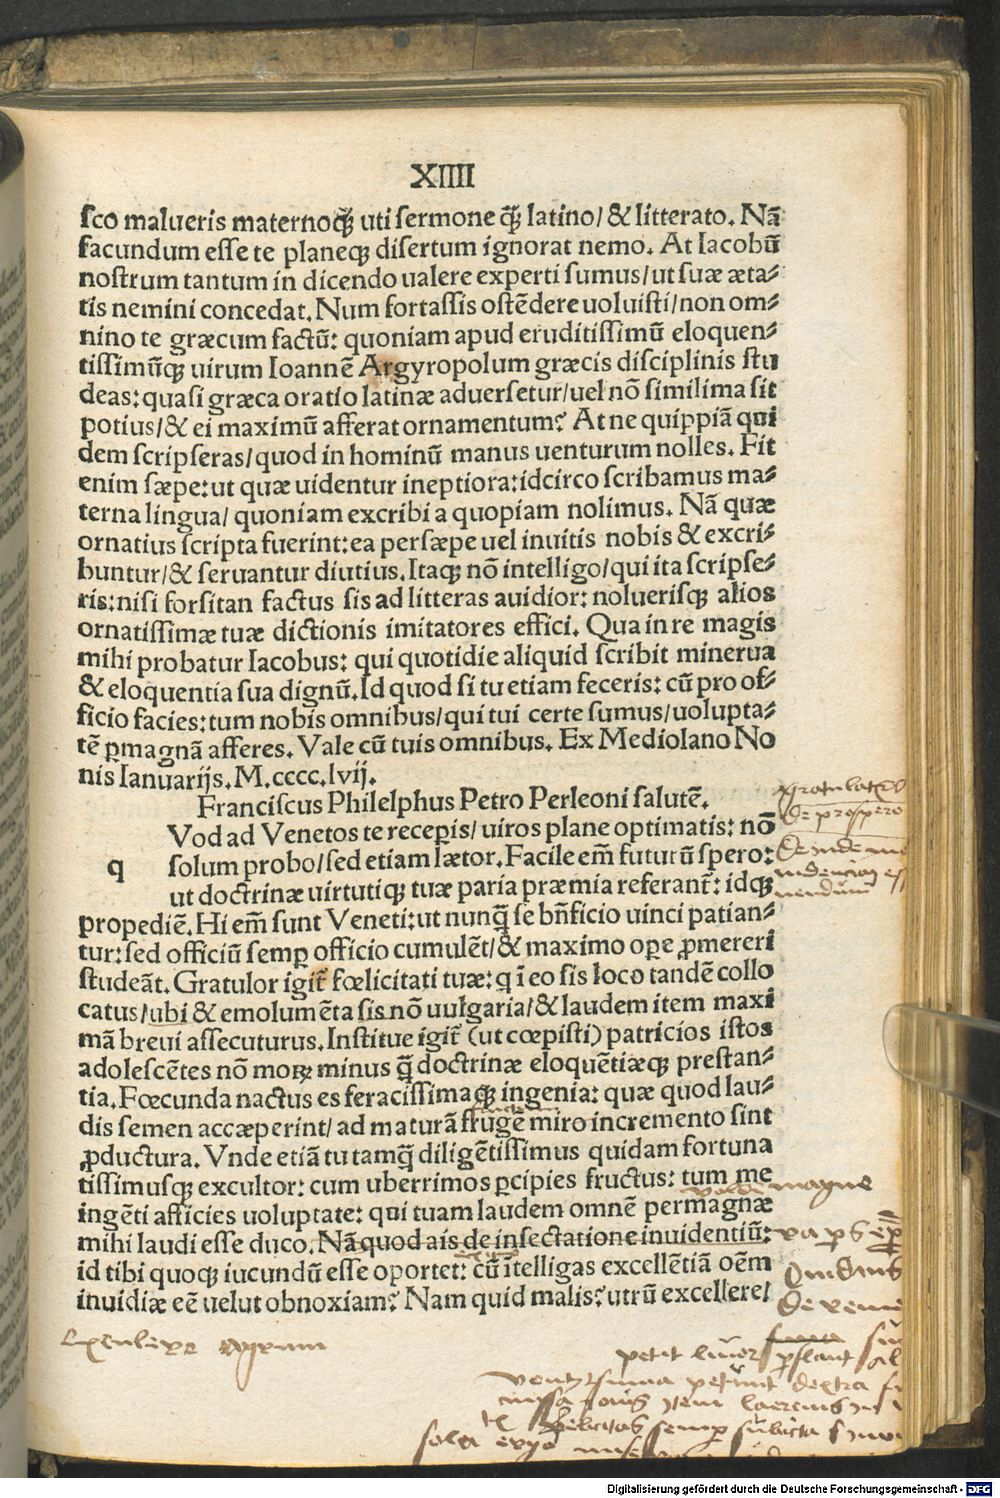 XIIII
sco malueris maternoqȝ uti sermone qȝ̃ latino/ & litterato. Nã
facundum esse te planeqȝ disertum ignorat nemo. At Iacobũ
nostrum tantum in dicendo ualere experti sumus/ ut suæ æta-
tis nemini concedat. Num fortassis ostẽdere uoluisti/ non om-
nino te græcum factũ: quoniam apud eruditissimũ eloquen-
tissimũqȝ uirum Ioannẽ Argyropolum græcis disciplinis stu
deas: quasi græca oratio latinæ aduersetur/ uel nõ similima sit
potius/ & ei maximũ afferat ornamentum? At ne quippiã qui
dem scripseras/ quod in hominũ manus uenturum nolles. Fit
enim sæpe: ut quæ uidentur ineptiora: idcirco scribamus ma-
terna lingua/ quoniam excribi a quopiam nolimus. Nã quæ
ornatius scripta fuerint: ea persæpe uel inuitis nobis & excri-
buntur/ & seruantur diutius. Itaqȝ nõ intelligo/ qui ita scripse-
ris: nisi forsitan factus sis ad litteras auidior: noluerisqȝ alios
ornatissimæ tuæ dictionis imitatores effici. Qua in re magis
mihi probatur Iacobus: qui quotidie aliquid scribit minerua
& eloquentia sua dignũ. Id quod si tu etiam feceris: cũ pro of-
ficio facies: tum nobis omnibus/ qui tui certe sumus/ uolupta-
tẽ ꝑmagnã afferes. Vale cũ tuis omnibus. Ex Mediolano No
nis Ianuarijs. M.cccc.lvij.
Franciscus Philelphus Petro Perleoni salutẽ.
Vod ad Venetos te recepis/ uiros plane optimatis: nõ
q solum probo/ sed etiam lætor. Facile em̃ futurũ spero:
ut doctrinæ uirtutiqȝ tuæ paria præmia referant̃: idqȝ
propediẽ. Hi em̃ sunt Veneti: ut nunq̃ se bñficio uinci patian-
tur: sed officiũ semꝑ officio cumulẽt/ & maximo oꝑe ꝓmereri
studeãt. Gratulor igit̃ fœlicitati tuæ: q ĩ eo sis loco tandẽ collo
catus/ ubi & emolumẽta sis nõ uulgaria/ & laudem item maxi
mã breui assecuturus. Institue igit̃ (ut cœpisti) patricios istos
adolescẽtes nõ moꝝ minus q̃ doctrinæ eloquẽtiæqȝ prestan-
tia. Fœcunda nactus es feracissimaqȝ ingenia: quæ quod lau-
dis semen accæperint/ ad maturã frugẽ miro incremento sint
ꝓductura. Vnde etiã tu tamq̃ diligẽtissimus quidam fortuna
tissimusqȝ excultor: cum uberrimos ꝑcipies fructus: tum me
ingẽti afficies uoluptate: qui tuam laudem omnẽ permagnæ
mihi laudi esse duco. Nã quod ais de insectatione inuidentiũ:
id tibi quoqȝ iucundũ esse oportet: cũ ĩtelligas excellẽtiã oẽm
inuidiæ eẽ uelut obnoxiam? Nam quid malis? utrũ excellere/
Excolere agrum
petit livor perflant
dextra
sola ergo
Digitalisierung gefördert durch die Deutsche Forschungsgemeinschaft - DFG